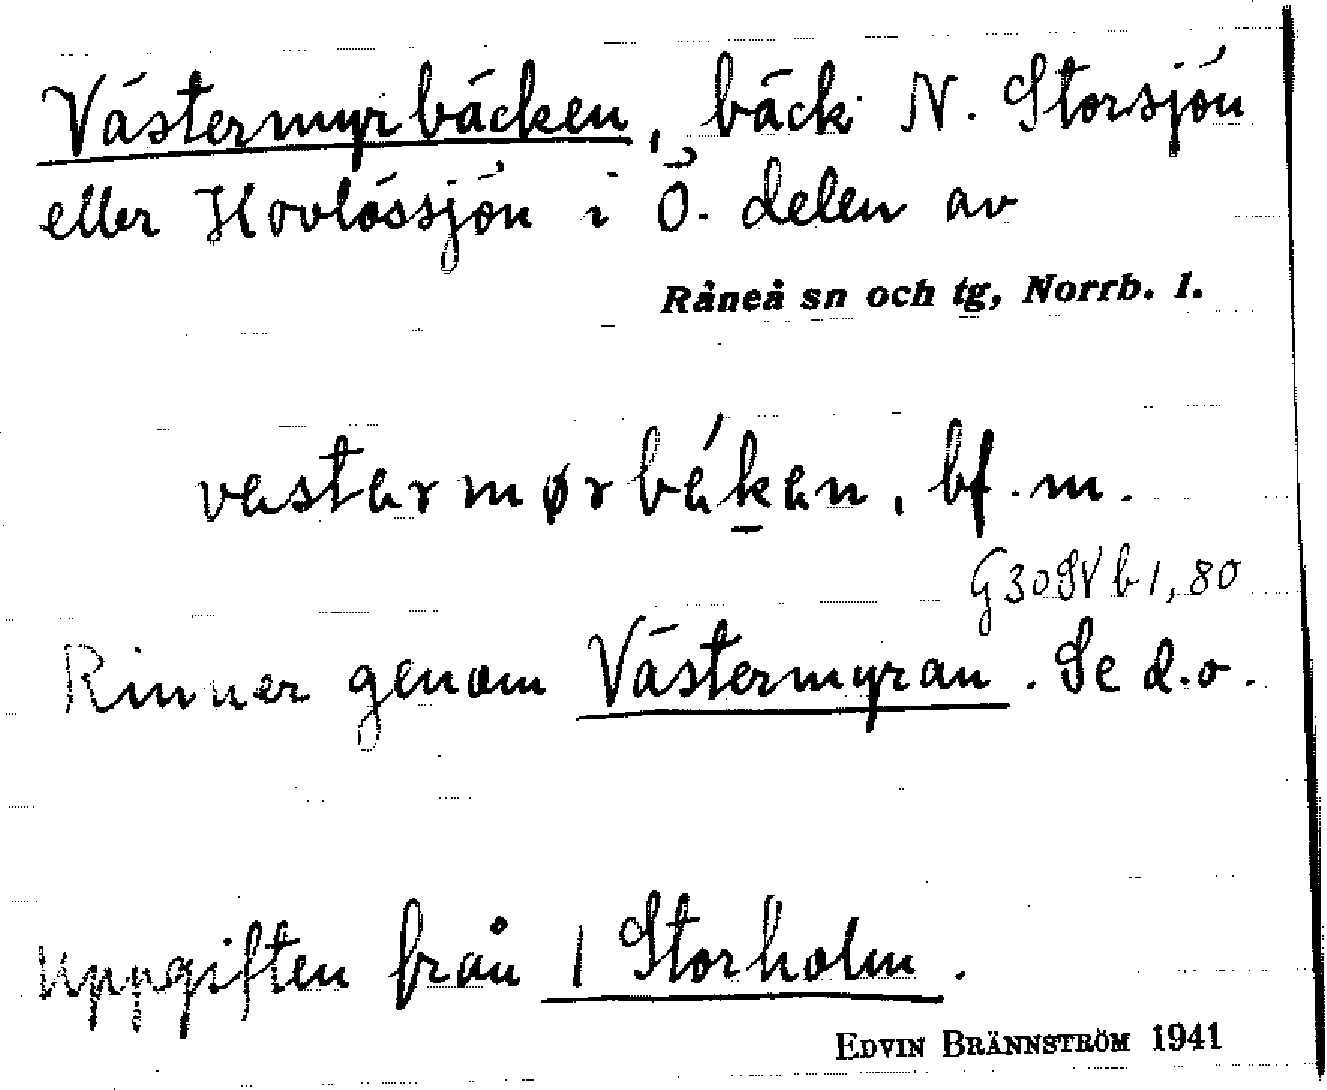 Västermyrbäcken, bäck N. Storsjön
eller Hovlössjön i Ö. delen av
Råneå sn och tg, Norrb. l.
vestərmørbékən, bf. m.
G30SVb1,80
Rinner genom Västermyran. Se d.o.
Uppgiften från 1 Storholm.
EDVIN BRÄNNSTRÖM 1941